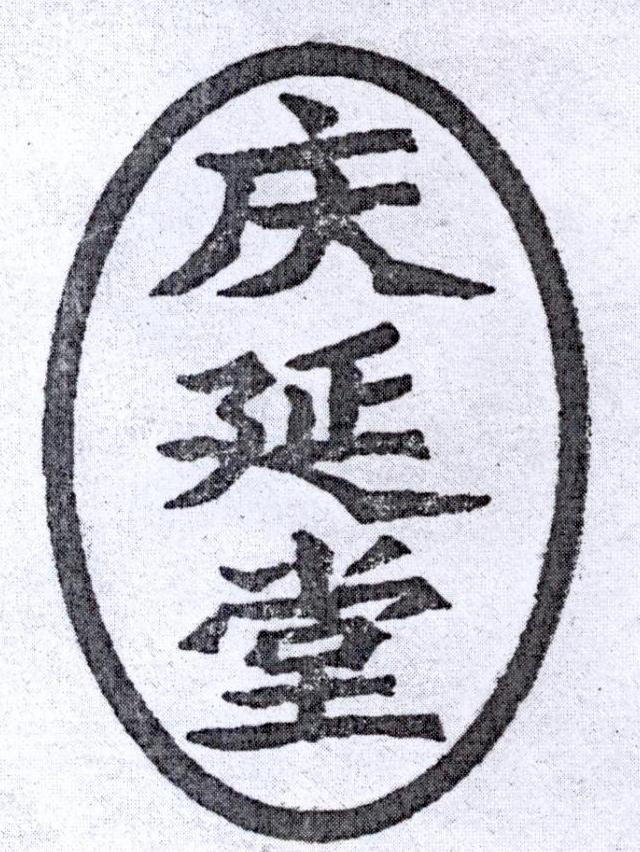 庆延堂